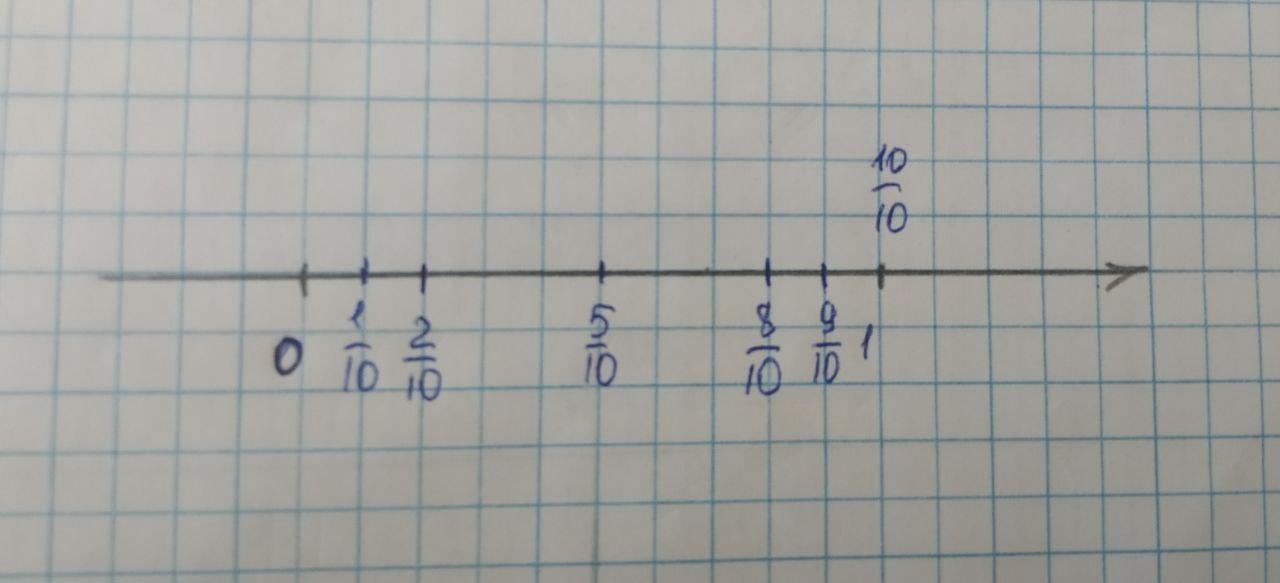 10/10
0 1/10 2/10 5/10 8/10 9/10 1